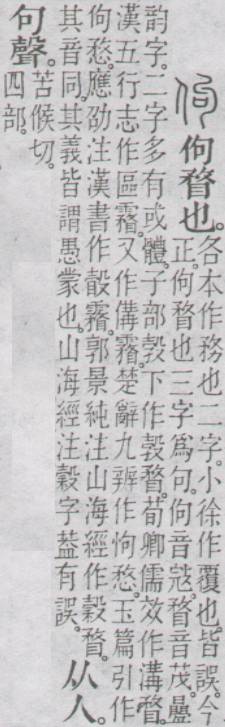 佝佝瞀也。
各本作務也二字。小徐作覆也。皆誤。今
正。佝瞀也三字爲句。佝音寇。瞀音茂。疊
韵字。二字多有或體。子部㝅下作㝅瞀。荀卿儒效作溝瞀。
漢五行志作區霿。又作傋霿。楚辭九辨作怐愗。玉篇引作
佝愗。應劭注漢書作瞉霿。郭景純注山海經作穀瞀。
其音同。其義皆謂愚蒙也。山海經注穀字葢有誤。
从人。
句聲。
苦候切。
四部。